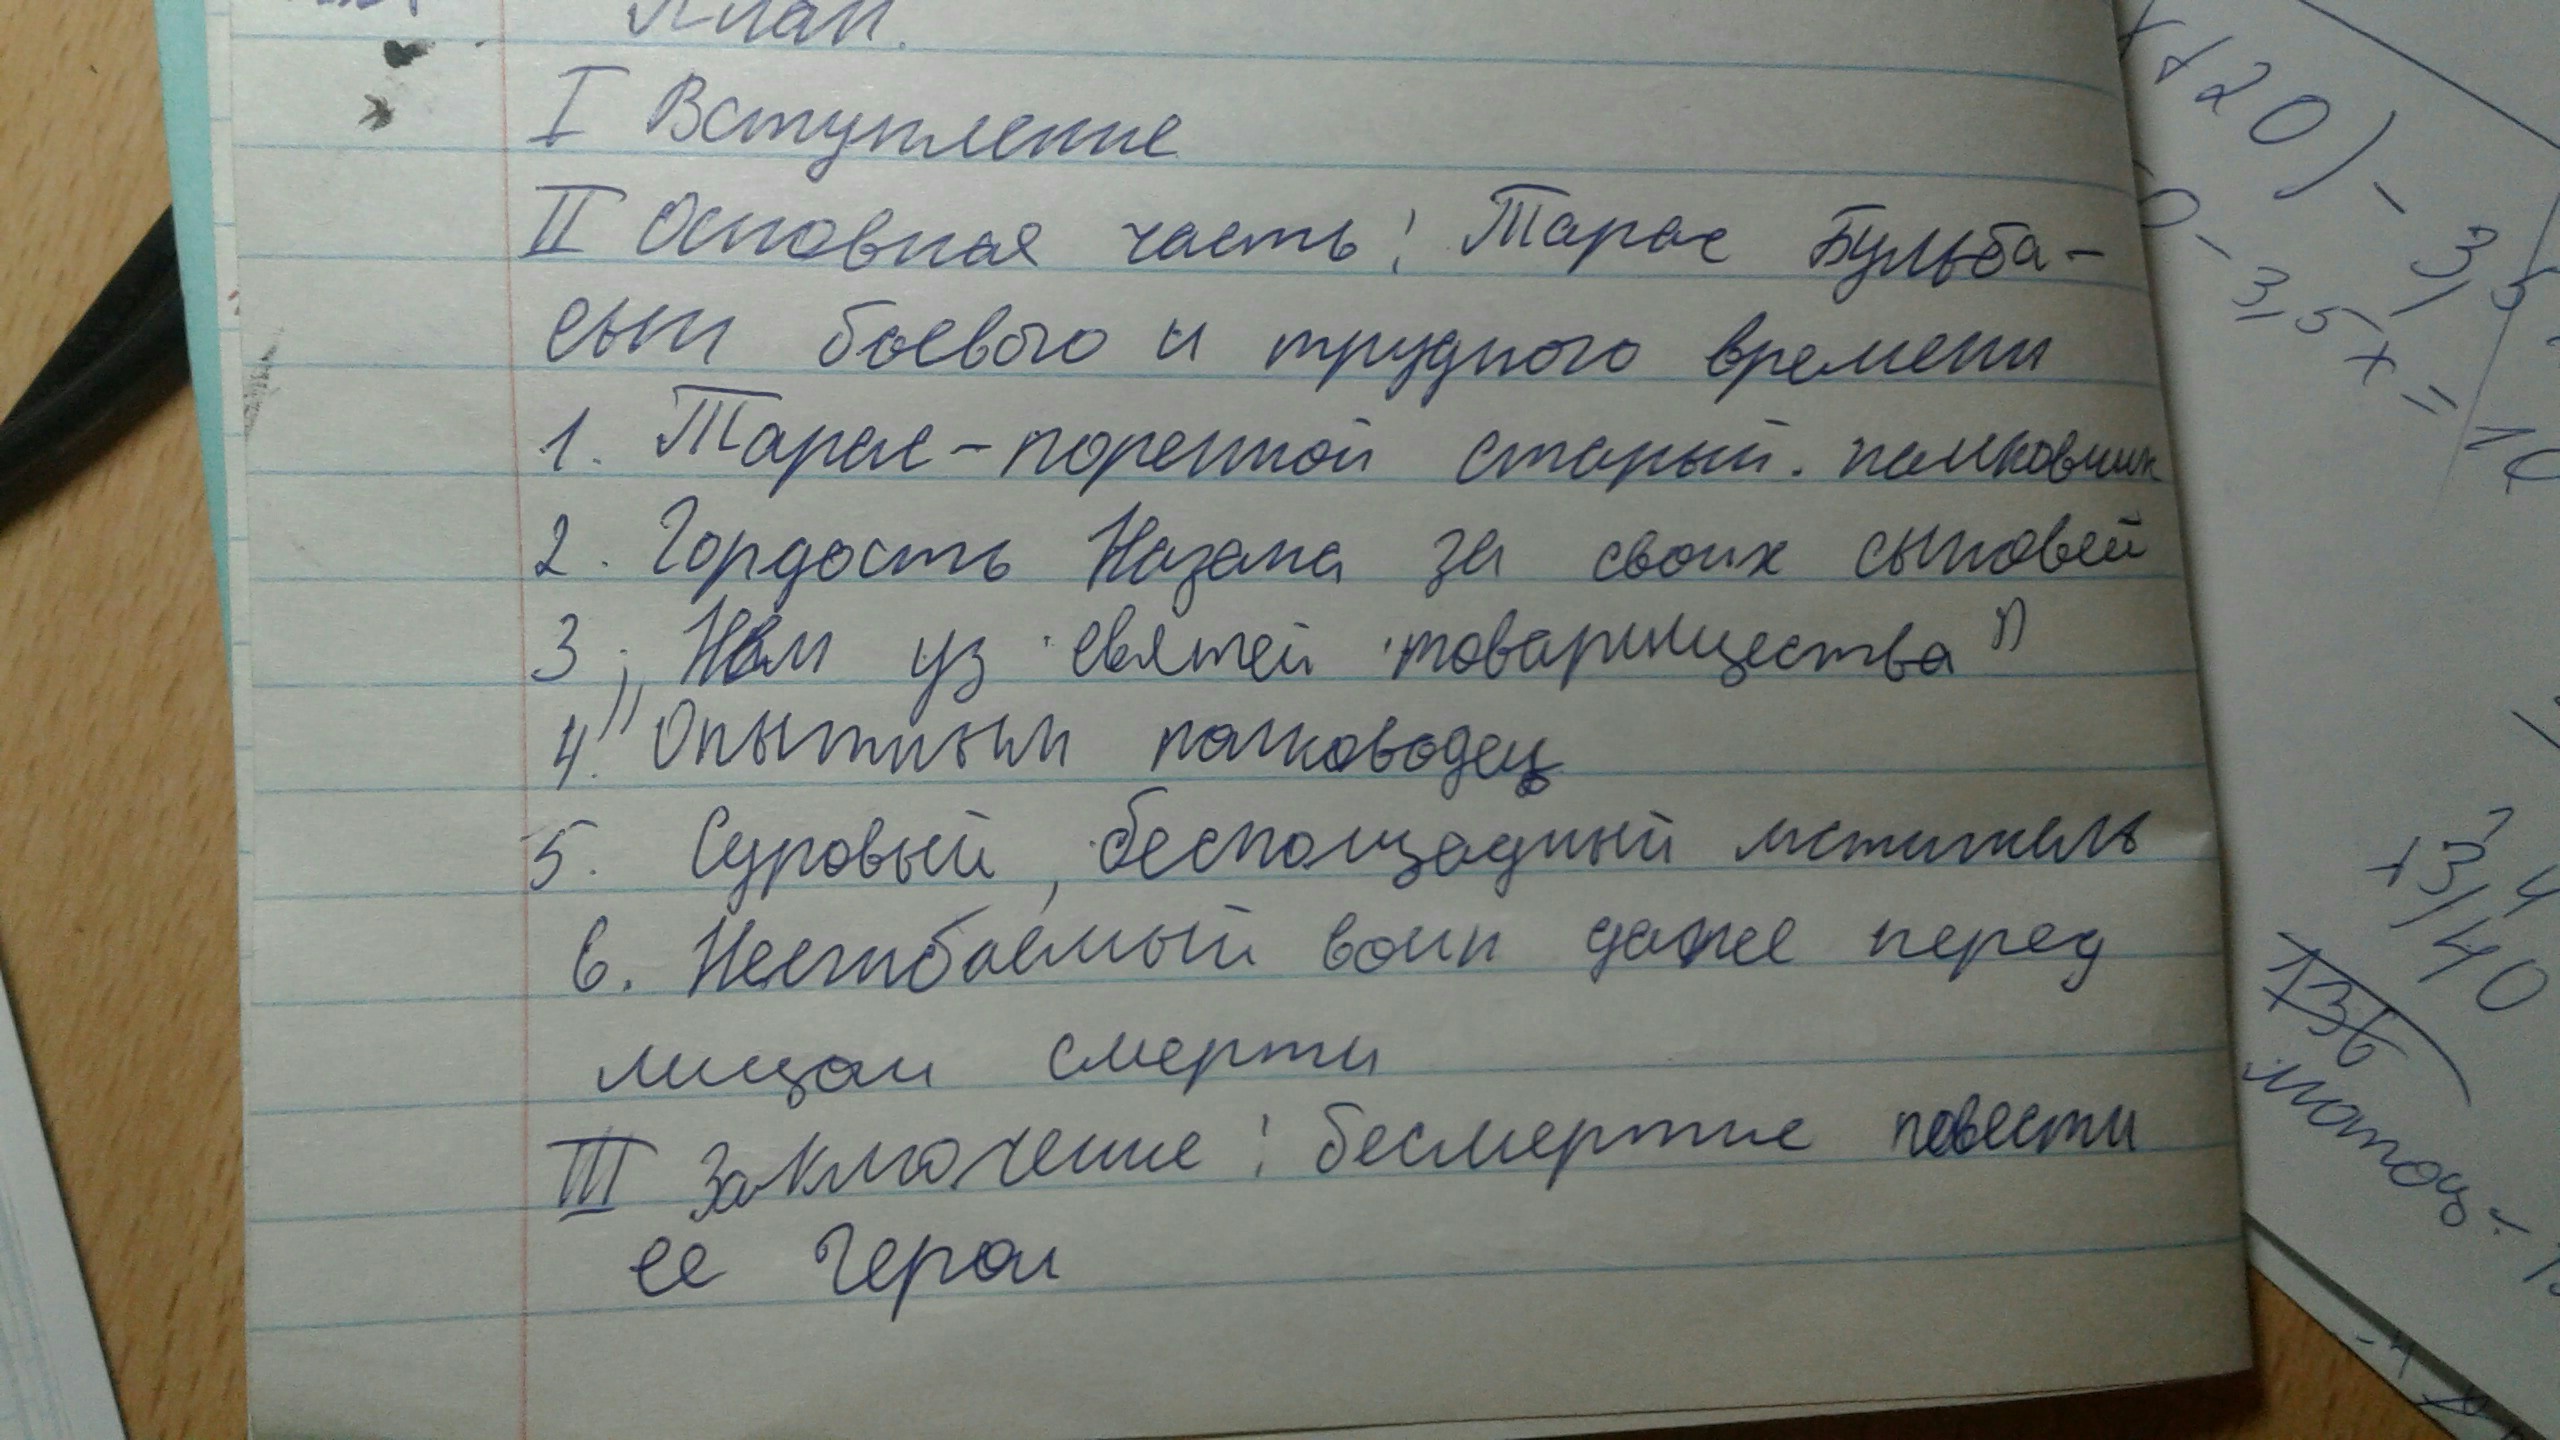 План.
I Вступление
II Основная часть: Тарас Бульба-
сын боевого и трудного времени
1. Тарас-коренной старый полковник
2. Гордость Казака за своих сыновей
3. „Нет уз святей товарищества"
4. Опытным полководец
5. Суровый, беспощадный мститель
6. Несгибаемый воин даже перед
лицом смерти
III Заключение: бесмертие повести
ее герои
+20) - 3,5
0 - 3,5x = 10
+3,40
136
мотоц -